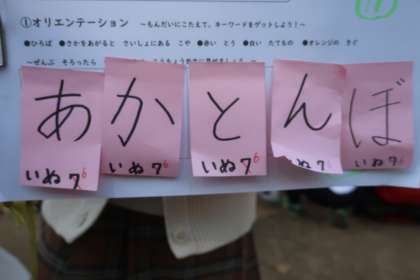 ①オリエンテーション ～もんだいにこたえて、キーワードをゲットしよう！～
●ひろば ●さかをあがると さいしょにある こや ●赤い とう ●白い たてもの ●オレンジの きぐ
～ぜんぶ そろったら
あ か と ん ぼ
いぬ7 6 いぬ7 6 いぬ76 いぬ7 6 いぬ7 6